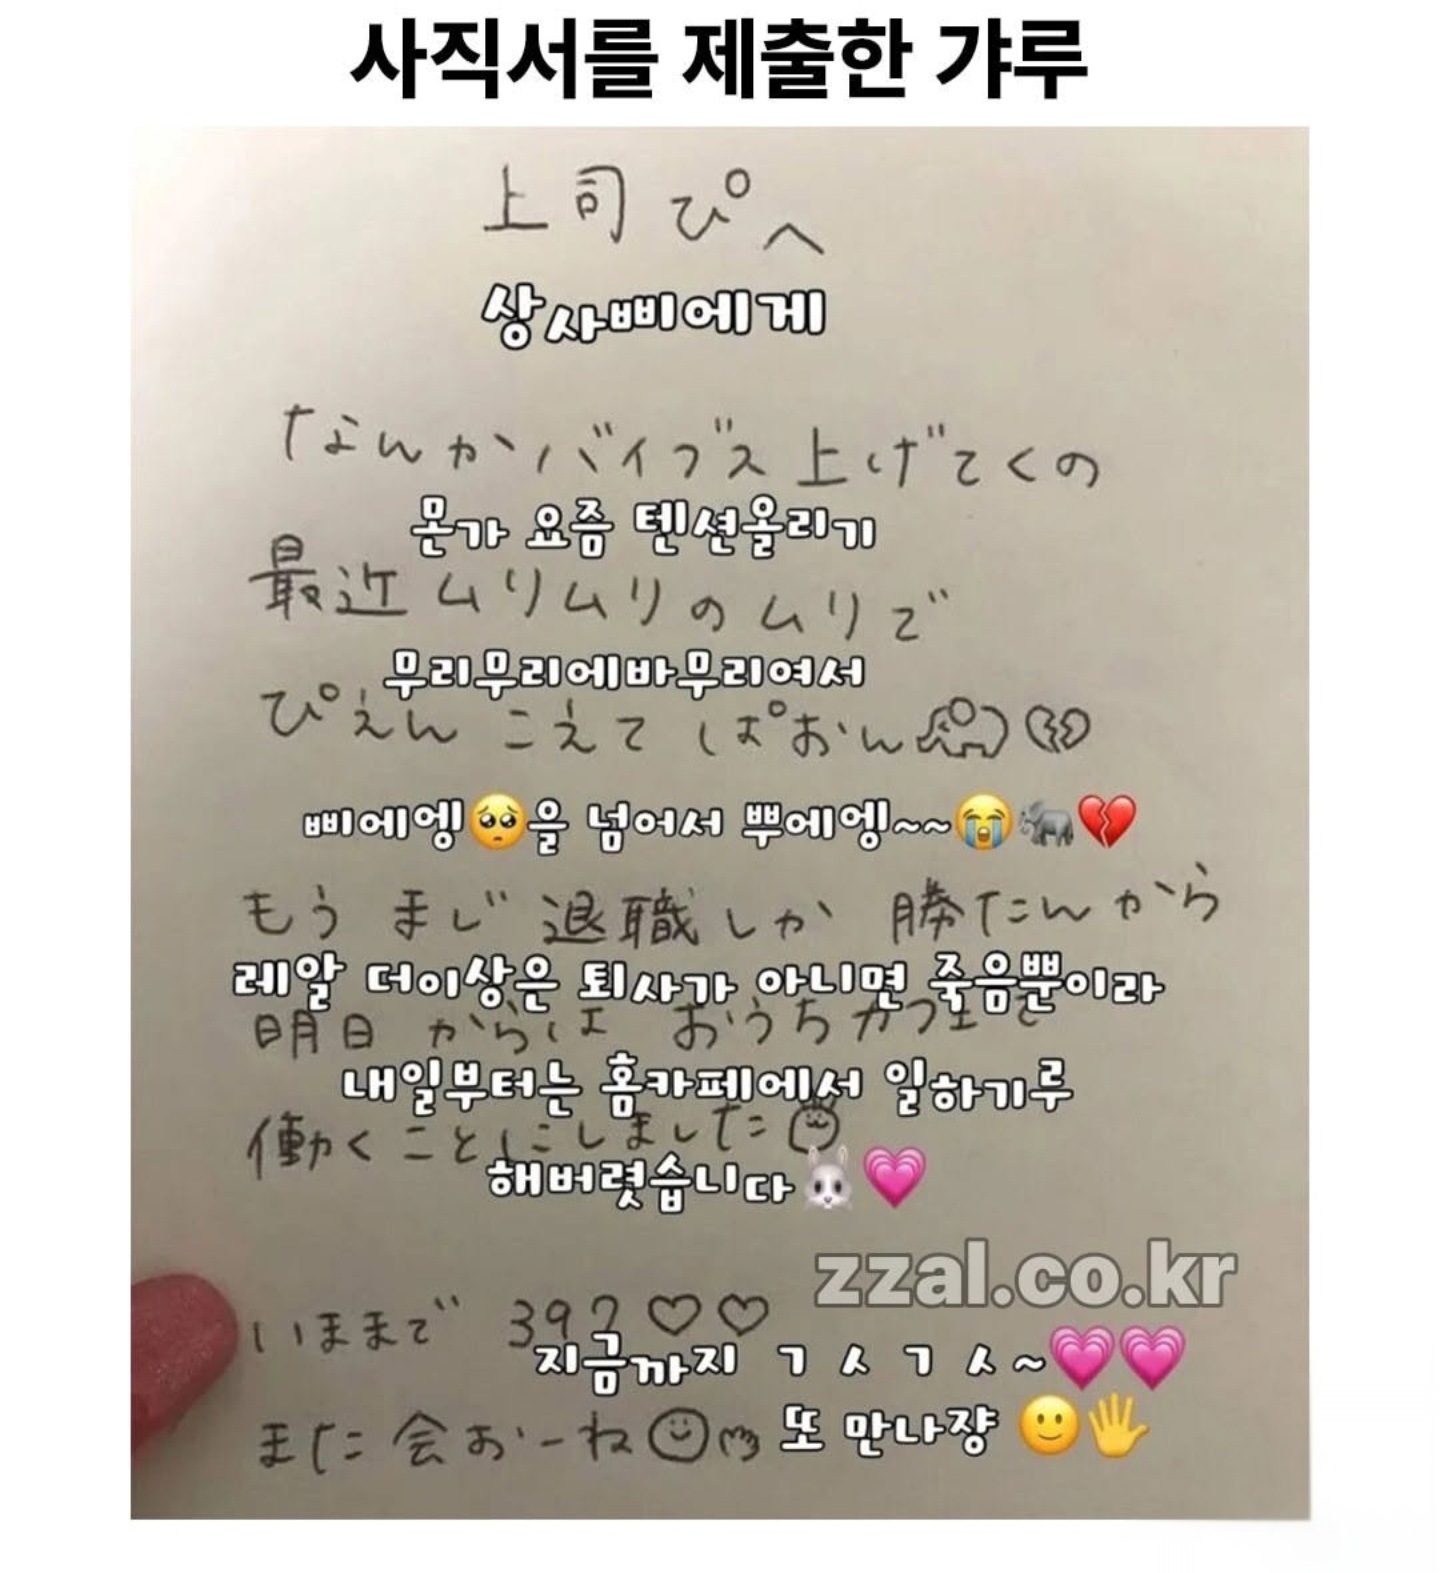 사직서를 제출한 갸루
上司ぴへ
상사삐에게
なんかバイブス上げてくの
몬가 요즘 텐션올리기
最近ムリムリのムリで
무리무리에바무리여서
ぴえんこえてぱおん
삐에엥🥺을 넘어서 뿌에엥~~😭🐘💔
もうまじ退職しか勝たんから
레알 더이상은 퇴사가 아니면 죽음뿐이라
明日からはおうちカフェで
내일부터는 홈카페에서 일하기루
働くことにしました
해버렷습니다🐰💗
zzal.co.kr
いままで 39?♡♡
지금까지 ㄱㅅㄱㅅ~💗💗
また会おーね 또 만나쟝 🙂🖐